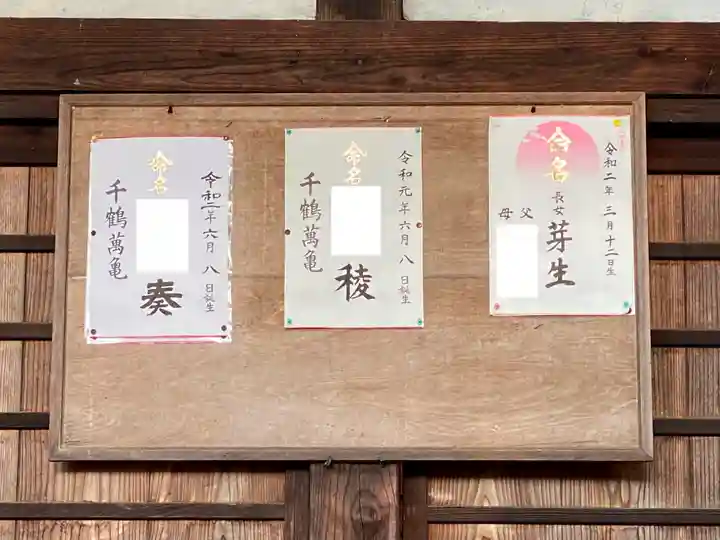 令和二年三月十二日生
命名
長女
芽生
父
母
令和元年六月八日誕生
命名
稜
千鶴萬亀
令和二年六月八日誕生
命名
奏
千鶴萬亀